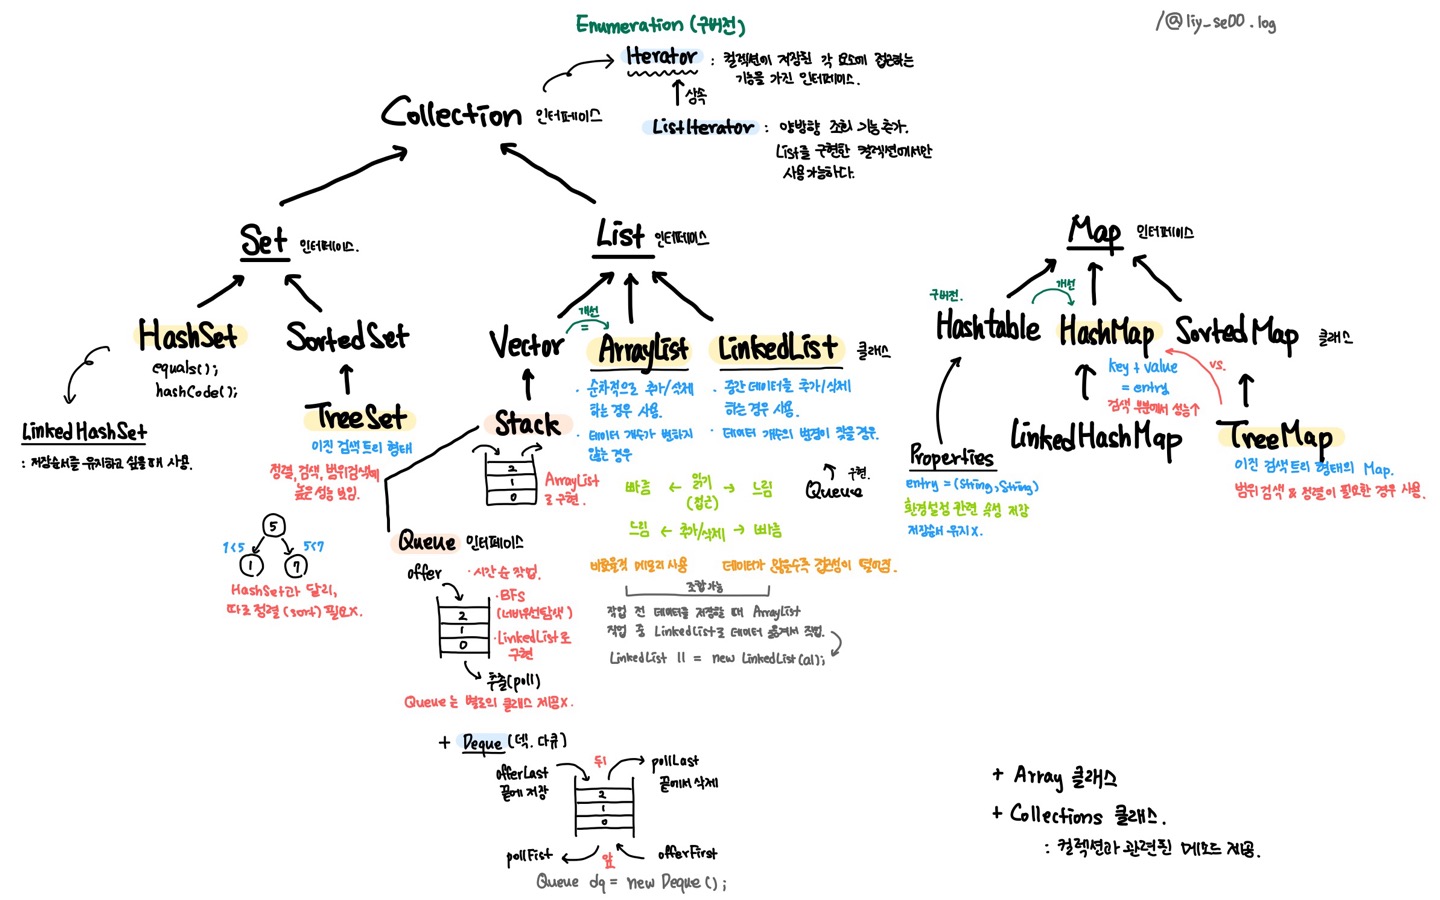 /@liy_se00.log
Enumeration (구버전)
Iterator : 컬렉션이 저장된 각 요소에 접근하는
기능을 가진 인터페이스.
상속
ListIterator : 양방향 조회 기능추가.
List를 구현한 컬렉션에서만
사용가능하다.
Collection 인터페이스
Set 인터페이스.
List 인터페이스
Map 인터페이스
HashSet
equals();
hashCode();
SortedSet
LinkedHashSet
: 저장순서를 유지하고 싶을 때 사용.
TreeSet
이진 검색 트리 형태
정렬, 검색, 범위검색에
높은 성능 보임.
5
1<5
5<7
1
7
HashSet과 달리,
따로 정렬 (sort) 필요X.
Vector
개선
=
ArrayList
LinkedList 클래스
· 순차적으로 추가/삭제
하는 경우 사용.
· 데이터 개수가 변하지
않는 경우
· 중간 데이터를 추가/삭제
하는 경우 사용.
· 데이터 개수의 변경이 잦을 경우.
Stack
2
1
0
ArrayList
로 구현.
구현.
Queue
빠름 ← 읽기 → 느림
(접근)
느림 ← 추가/삭제 → 빠름
비효율적 메모리 사용
데이터가 많을수록 접근성이 떨어짐.
조합가능
작업 전 데이터를 저장할 때 ArrayList
작업 중 LinkedList로 데이터 옮겨서 작업.
LinkedList ll = new LinkedList(al);
Queue 인터페이스
offer
2
1
0
· 시간순 작업.
· BFS
(너비우선탐색)
· LinkedList로
구현
추출(poll)
Queue는 별도의 클래스 제공X.
+ Deque (덱. 디큐)
offerLast
끝에 저장
뒤
pollLast
끝에서 삭제
2
1
0
pollFist
앞
offerFirst
Queue dq = new Deque();
구버전.
Hashtable
개선
HashMap
SortedMap 클래스
key + value
= entry
검색 부분에서 성능↑
vs.
LinkedHashMap
TreeMap
이진 검색 트리 형태의 Map.
범위 검색 & 정렬이 필요한 경우 사용.
Properties
entry = (String, String)
환경설정 관련 속성 저장
저장순서 유지X.
+ Array 클래스
+ Collections 클래스.
: 컬렉션과 관련된 메소드 제공.